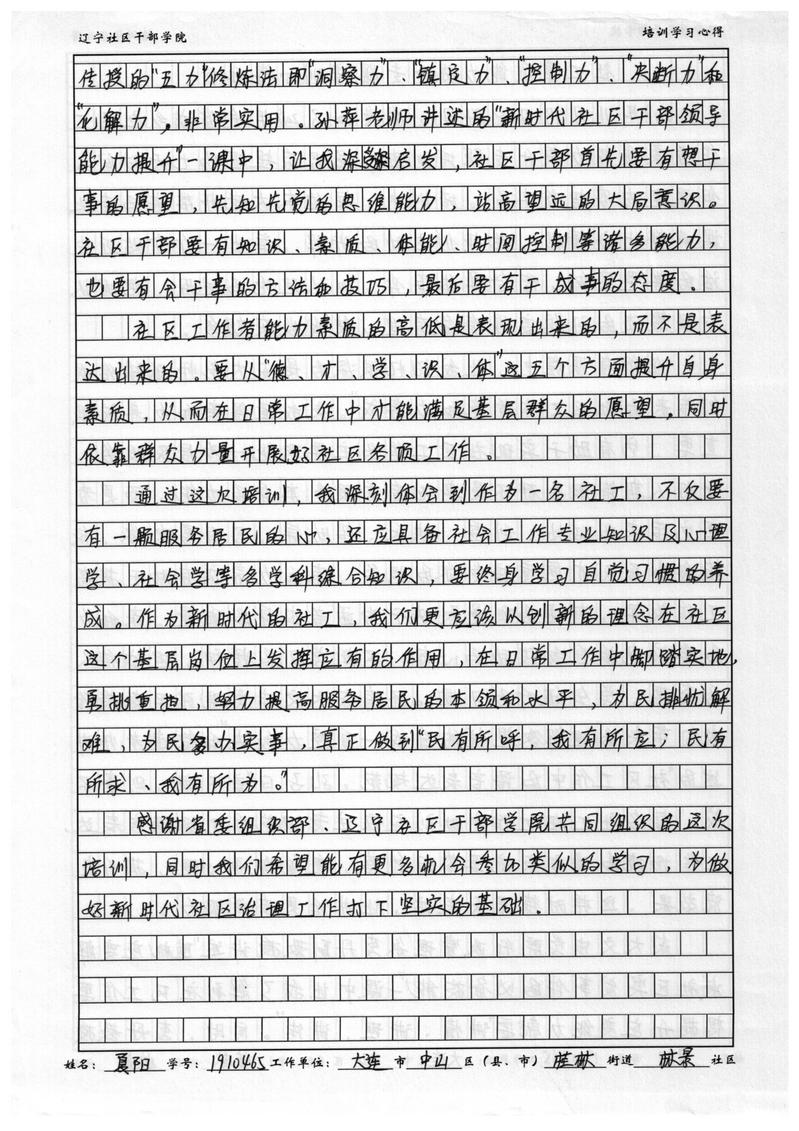 辽宁社区干部学院 培训学习心得
传授的"五力"修炼法即"洞察力"、"镇定力"、"控制力"、"决断力"和
"化解力"。非常实用。孙萍老师讲述的"新时代社区干部领导
能力提升"一课中，让我深受启发，社区干部首先要有想干
事的愿望，先知先觉的思维能力，站高望远的大局意识。
社区干部要有知识、素质、体能、时间控制等诸多能力，
也要有会干事的方法和技巧，最后要有干成事的态度。
社区工作者能力素质的高低是表现出来的，而不是表
达出来的。要从"德、才、学、识、体"这五个方面提升自身
素质，从而在日常工作中才能满足基层群众的愿望，同时
依靠群众力量开展好社区各项工作。
通过这次培训，我深刻体会到作为一名社工，不仅要
有一颗服务居民的心，还应具备社会工作专业知识及心理
学、社会学等多学科综合知识，要终身学习自觉习惯的养
成。作为新时代的社工，我们更应该以创新的理念在社区
这个基层岗位上发挥应有的作用，在日常工作中脚踏实地，
勇挑重担，努力提高服务居民的本领和水平，为民排忧解
难，为民多办实事，真正做到"民有所呼，我有所应；民有
所求、我有所为。"
感谢省委组织部、辽宁社区干部学院共同组织的这次
培训，同时我们希望能有更多机会参加类似的学习，为做
好新时代社区治理工作打下坚实的基础．
姓名：夏阳 学号：1910465 工作单位：大连 市 中山 区（县、市）桂林 街道 林景 社区